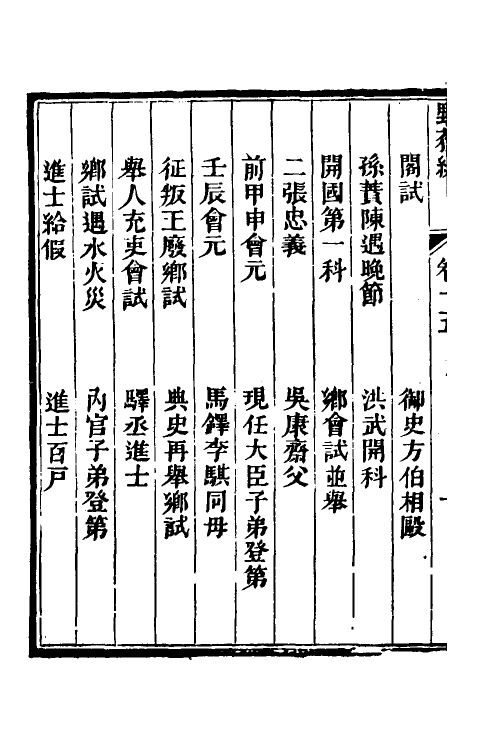 閣試　御史方伯相毆
孫蕡陳遇晚節　洪武開科
開國第一科　鄉會試並舉
二張忠義　吳康齋父
前甲申會元　現任大臣子弟登第
壬辰會元　馬鐸李騏同母
征叛王廢鄉試　典史再舉鄉試
舉人充吏會試　驛丞進士
鄉試遇水火災　內官子弟登第
進士給假　進士百戶